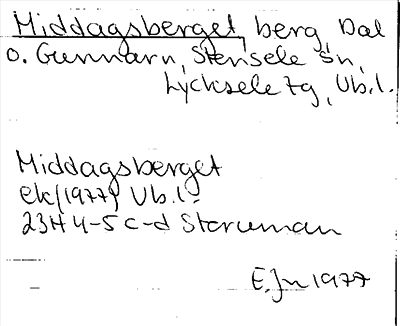 Middagsberget, berg, Dal
o. Gunnarn, Stensele sn,
Lycksele tg, Vb.l.
Middagsberget
ek (1977) Vb.l.
23H 4-5 c-d Storuman
E. Jn 1977